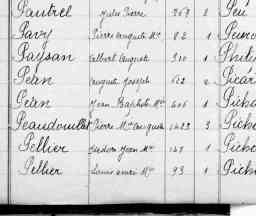 Pautrel Jules Pierre 269 2 Peu
Pavy Pierre Auguste Mie 82 1
Paysan Albert August 310 1
Péan August Joseph 622 2 Picar
Péan Jean Baptiste Mie 406 1 Picho
Peaudouillet Pierre Mie August 1423 3 Picho
Pellier Isidore Jean Mie 149 1 Picho
Pellier Louis Mie 93 1 Picho